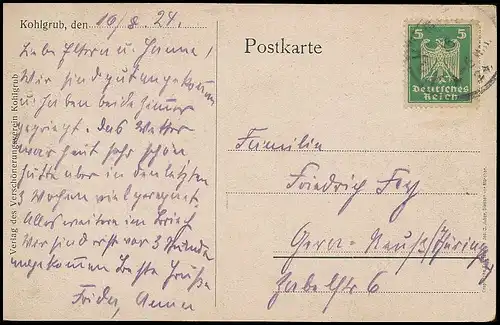 Kohlgrub, den 16/8. 24.
Liebe Eltern u. Hanna!
Wir sind gut angekommen
u. haben beide Zimmer
gekriegt. Das Wetter
war heut sehr schön
hatte aber in den letzten
3 Wochen viel geregnet.
Alles weitere im Brief
Wir sind erst vor 3 Stunden
angekommen Beste Grüße
Frida,
Verlag des Verschönerungsverein Kohlgrub
Postkarte
5 5
Deutsches
Reich
Familie
Friedrich
Gera-Reuß/Thüringen
6